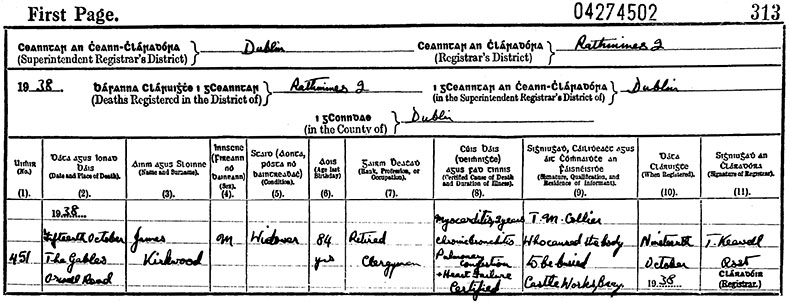 First Page.
04274502
313
Ceanntar an Ċeann-Ċláraḋóra
(Superintendent Registrar's District)
Dublin
Ceanntar an Ċláraḋóra
(Registrar's District)
Rathmines 2
1938
Básanna Cláruiġṫe i gCeanntar
(Deaths Registered in the District of)
Rathmines 2
i gCeanntar an Ċeann-Ċláraḋóra
(in the Superintendent Registrar's District of)
Dublin
i gConndae
(in the County of)
Dublin
Uiṁir
(No.)
(1).
Dáta agus Ionad
Báis
(Date and Place of Death).
(2).
Ainm agus Sloinne
(Name and Surname).
(3).
Innscne
(Fireann
nó
Baineann)
(Sex).
(4).
Staid (Aonta,
pósta nó
baintreaḃaċ)
(Condition).
(5).
Aois
(Age last
Birthday)
(6).
Gairm Beaṫaḋ
(Rank, Profession, or
Occupation).
(7).
Cúis Báis
(Deiṁniġṫe)
agus Fad Tinnis
(Certified Cause of Death
and Duration of Illness).
(8).
Síniuġaḋ, Cáilíḋeaċt agus
Áit Coṁnaiḋṫe an
Fáisnéisiḋe
(Signature, Qualification, and
Residence of Informant).
(9).
Dáta
Cláruiġṫe
(When Registered).
(10).
Síniuġaḋ an
Ċláraḋóra
(Signature of Registrar).
(11).
451
1938
Fifteenth October
The Gables
Orwell Road
James
Kirkwood
M
Widower
84
yrs
Retired
Clergyman
Myocarditis 3 years
Chronic bronchitis
Pulmonary
Congestion
+ Heart Failure
Certified
T. M. Collier
Who caused the body
to be buried
Castle
Bray
Nineteenth
October
1938
Cláraḋóir
(Registrar).